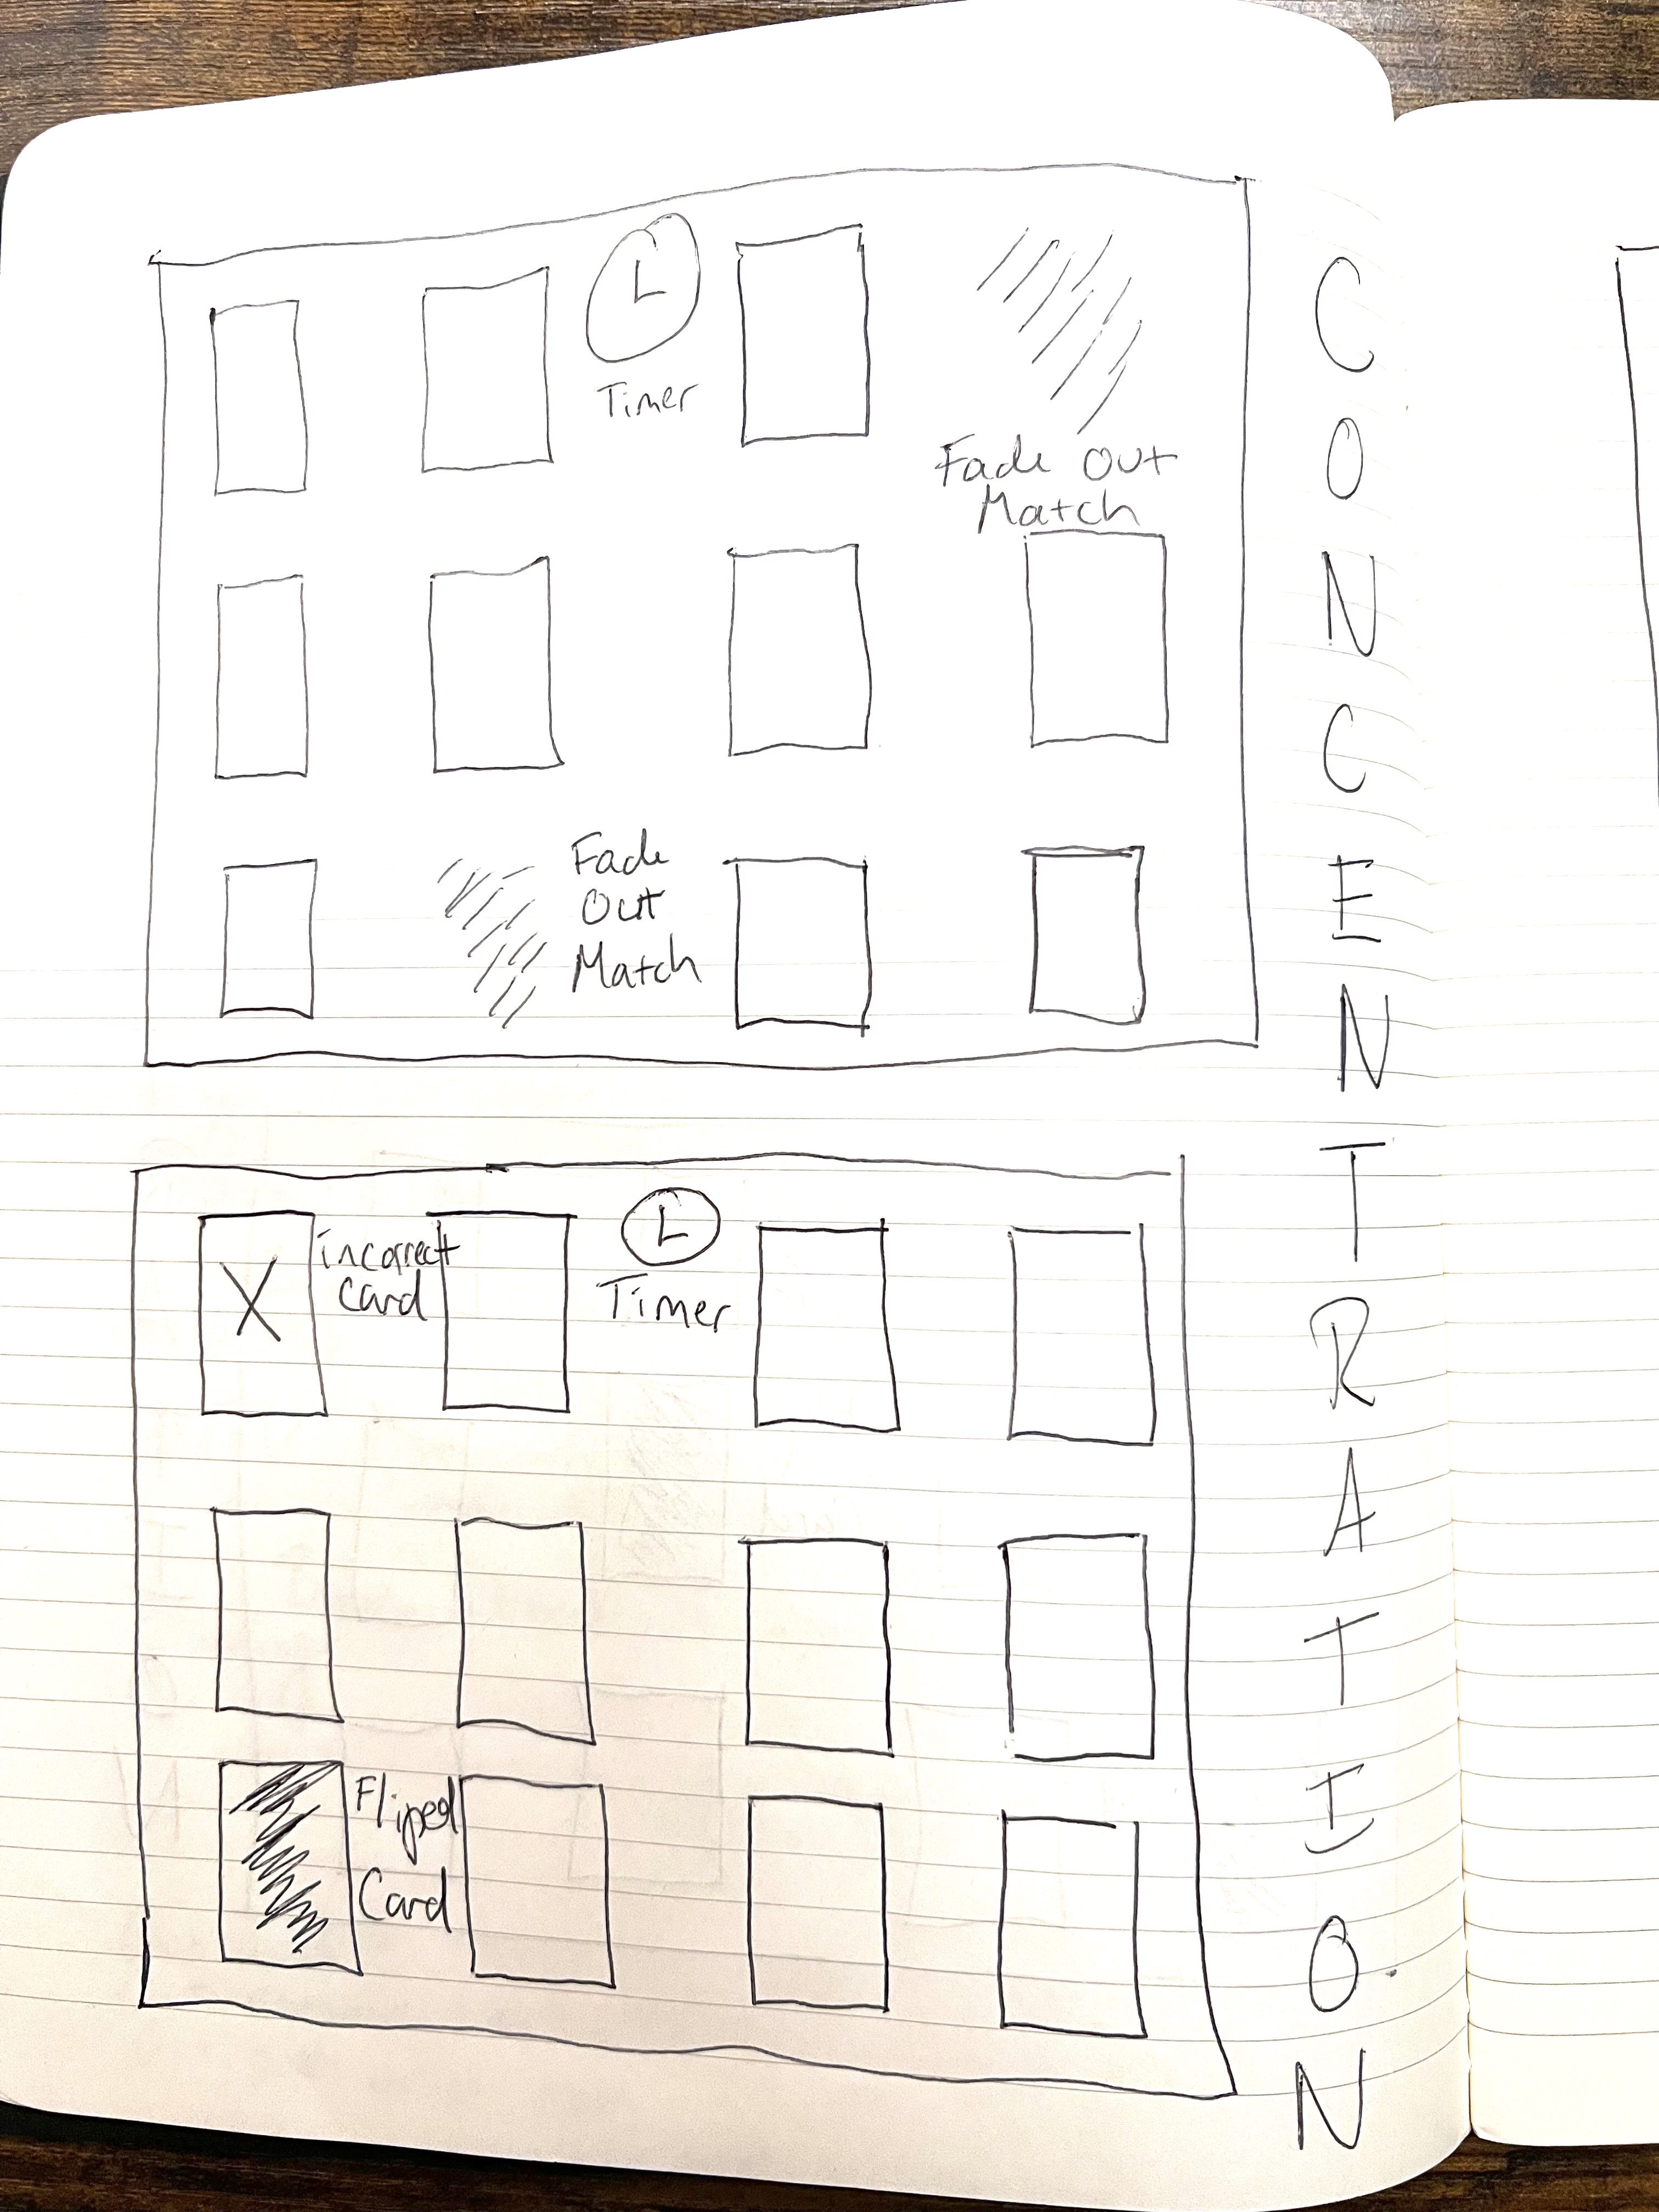 Timer
Fade Out
Match
Fade
Out
Match
incorrect
Card
Timer
Fliped
Card
C
O
N
C
E
N
T
R
A
T
I
O
N